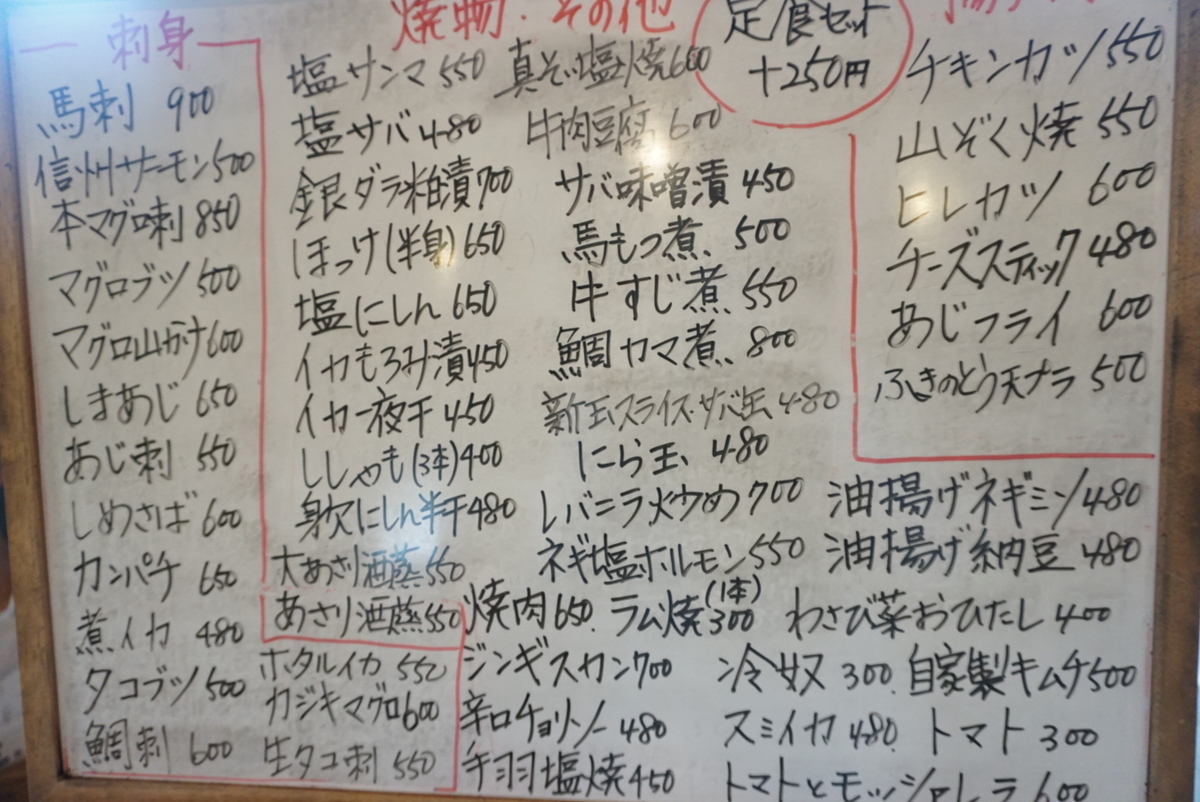 刺身
馬刺 900
信州サーモン 500
本マグロ刺 850
マグロブツ 500
マグロ山かけ 600
しまあじ 650
あじ刺 550
しめさば 600
カンパチ 650
煮イカ 480
タコブツ 500
鯛刺 600
ホタルイカ 550
カジキマグロ 600
生タコ刺 550
焼物・その他
塩サンマ 550
塩サバ 480
銀ダラ粕漬 700
ほっけ(半身) 650
塩にしん 650
イカもろみ漬 450
イカ一夜干 450
ししゃも(3本) 400
身欠にしん半干 480
大あさり酒蒸 550
あさり酒蒸 550
真そい塩焼 600
牛肉豆腐 600
サバ味噌漬 450
馬もつ煮 500
牛すじ煮 550
鯛カマ煮 800
新玉スライス・サバ缶 480
にら玉 480
レバニラ炒め 700
ネギ塩ホルモン 550
焼肉 650 ラム焼(1本) 300
ジンギスカン 700
辛口チョリソー 480
手羽塩焼 450
定食セット
+250円
チキンカツ 550
山ぞく焼 550
ヒレカツ 600
チーズスティック 480
あじフライ 600
ふきのとう天プラ 500
油揚げネギミソ 480
油揚げ納豆 480
わさび菜おひたし 400
冷奴 300 自家製キムチ 500
スミイカ 480 トマト 300
トマトとモッツァレラ 600